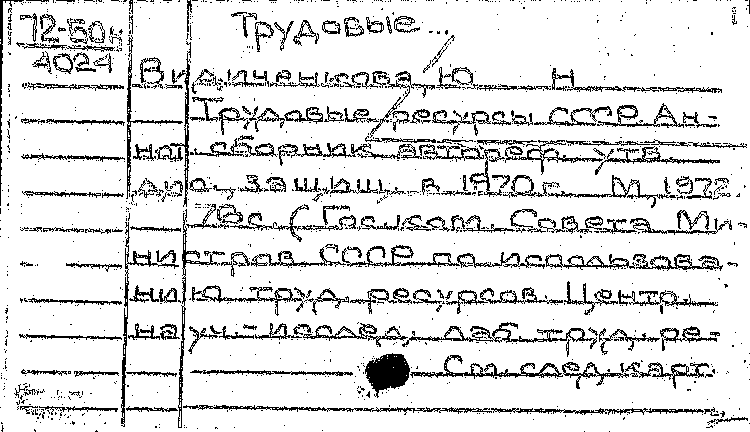 72-50к
4024
Трудовые...
Видиченкова, Ю Н
Трудовые ресурсы СССР. Ан-
нот. сборник автореф. утв.
дис., защищ. в 1970 г. М, 1972.
78с. (Гос. ком. Совета Ми-
нистров СССР по использова-
нию труд. ресурсов. Центр.
науч.-исслед. лаб. труд. ре-
См. след. карт.